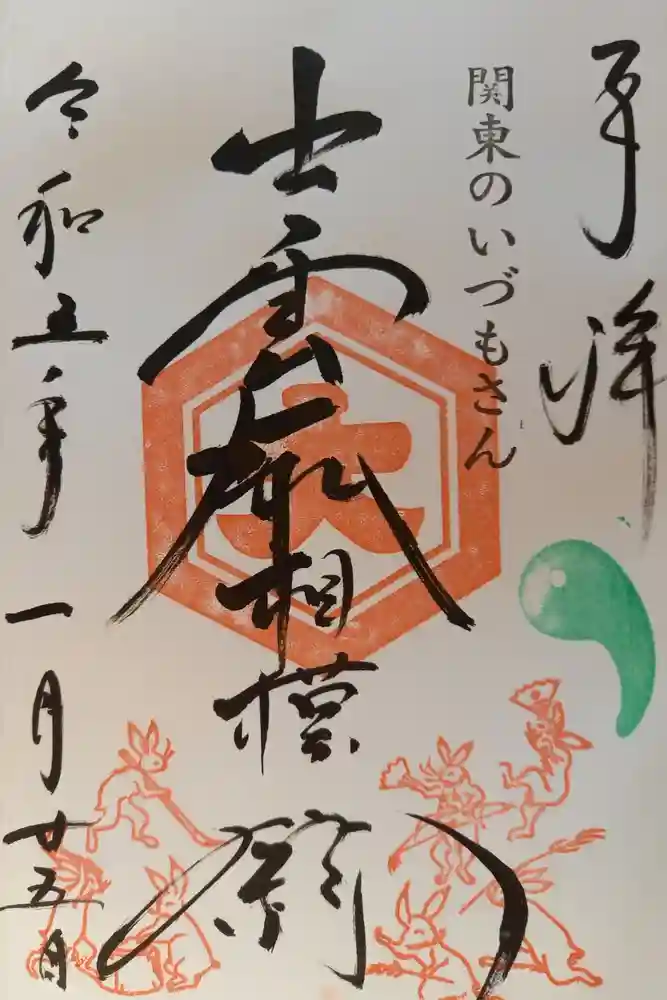 奉拝
関東のいづもさん
大
出雲大社相模分祠
令和五年一月廿五日